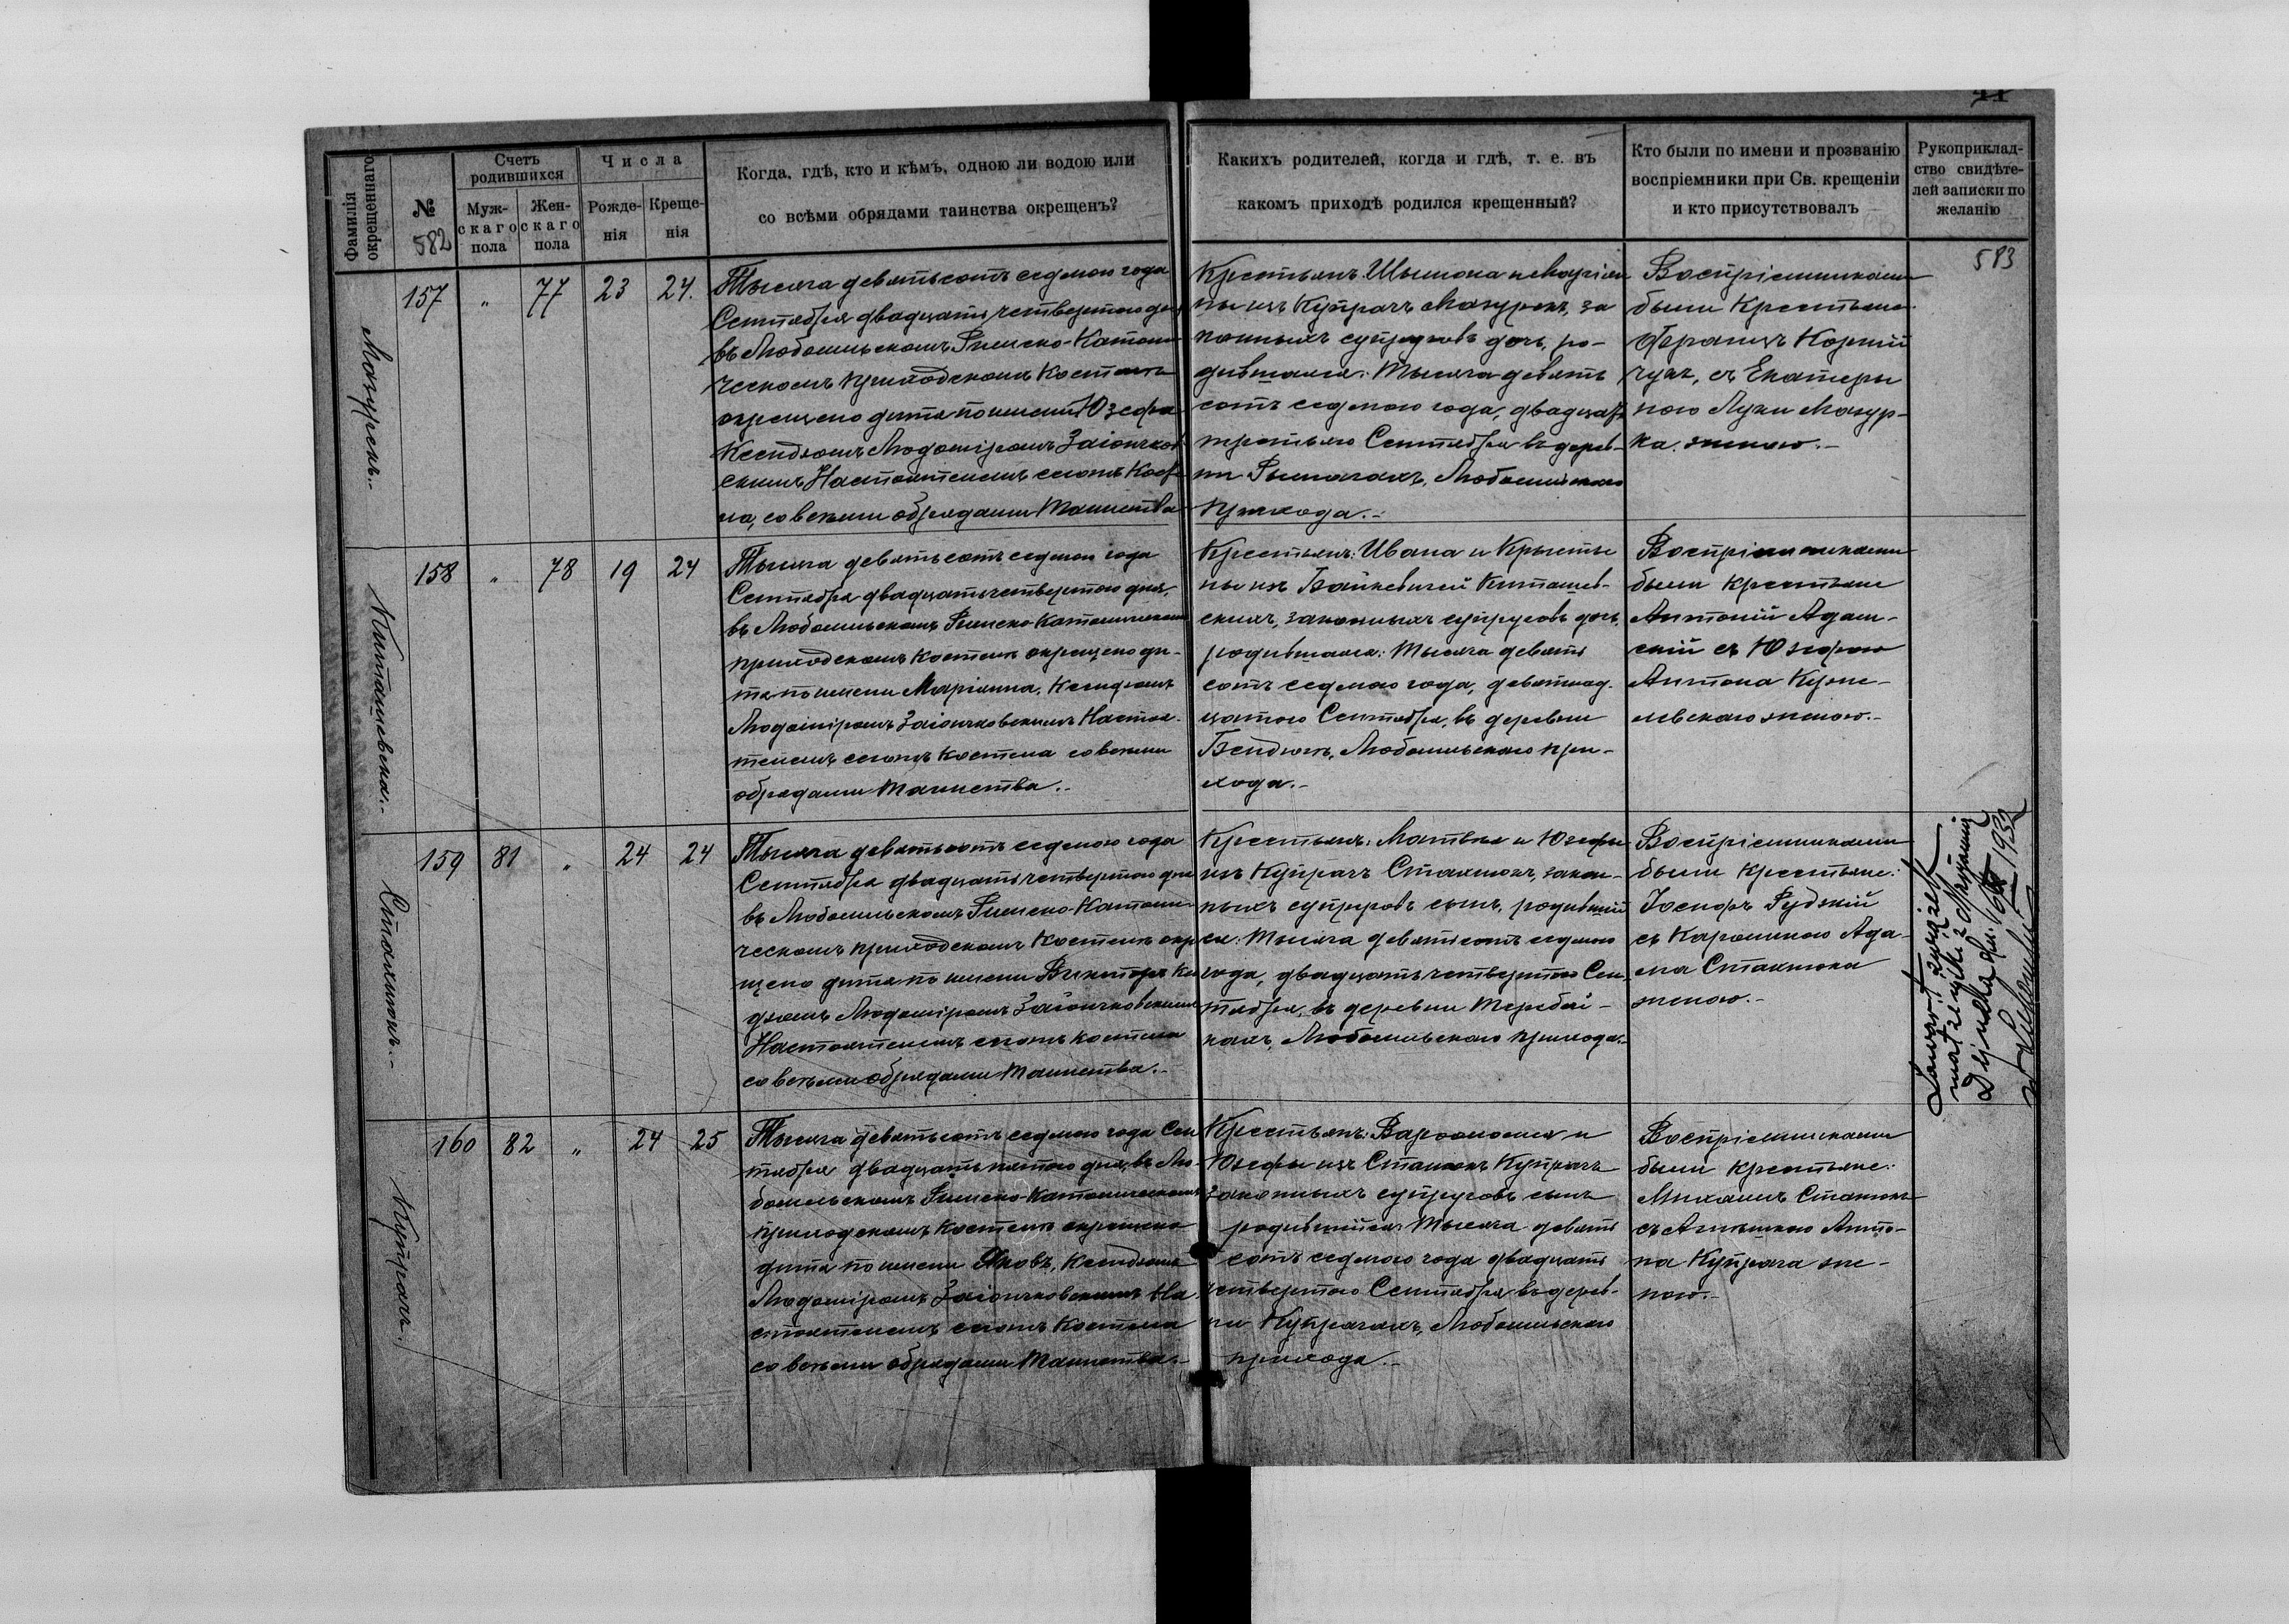 41
Фамилія окрещеннаго.
№
582
Счетъ родившихся
Мужскаго пола
Женскаго пола
Числа
Рожденія
Крещенія
Когда, гдѣ, кто и кѣмъ, одною ли водою или
со всѣми обрядами таинства окрещенъ?
Какихъ родителей, когда и гдѣ, т. е. въ
какомъ приходѣ родился крещенный?
Кто были по имени и прозванію
воспріемники при Св. крещеніи
и кто присутствовалъ
Рукоприклад-
ство свидѣте-
лей записки по
желанію
583
Мазурекъ.
157 „ 77 23 24.
Тысяча девятьсотъ седмого года
Сентября двадцать четвертого дня
въ Любомльскомъ Римско-Католи-
ческомъ приходскомъ Костелѣ
окрещено дитя по имени Юзефа
Ксендзомъ Людоміромъ Заіончков-
скимъ Настоятелемъ сегожъ Косте-
ла, со всѣми обрядами Таинства
Крестьянъ: Шымона и Маріан-
ны изъ Купрачъ Мазурекъ, за
конныхъ супруговъ дочь, ро-
дившаяся: Тысяча девять
сотъ седмого года, двадцать
третьяго Сентября въ дерев-
ни Рымачахъ, Любомльского
прихода.-
Воспріемниками
были Крестьяне:
Францъ Корний
чукъ, съ Екатеры
ною Луки Мазур-
ка женою.-
Киташевска.
158 „ 78 19 24
Тысяча девятьсотъ седмого года
Сентября двадцать четвертого дня,
въ Любомльскомъ Римско-Католическомъ
приходскомъ Костелѣ окрещено ди-
тя по имени Маріанна, Ксендзомъ
Людоміромъ Заіончковскимъ Настоя-
телемъ сегожъ Костела со всѣми
обрядами Таинства.-
Крестьянъ: Ивана и Крысты-
ны изъ Байкевичей Киташев-
скихъ, законныхъ супруговъ дочь,
родившаяся: Тысяча девять
сотъ седмого года, девятнад-
цатого Сентября, въ деревни
Бендюгѣ, Любомльского при-
хода.-
Воспріемниками
были крестьяне
Антоній Адам-
скій съ Юзефою
Антона
женою.-
Стахнюкъ.
159 81 „ 24 24
Тысяча девятьсотъ седмого года
Сентября двадцать четвертого дня
въ Любомльскомъ Римско-Католи-
ческомъ приходскомъ Костелѣ окре
щено дитя по имени Викторъ Ксен
дзомъ Людоміромъ Заіончковскимъ
Настоятелемъ сегожъ костела
со всѣми обрядами Таинства.-
Крестьянъ: Матвѣя и Юзефы
изъ Купрачъ Стахнюкъ, закон-
ныхъ супруговъ сынъ, родивший
ся: Тысяча девятьсотъ седмого
года, двадцать четвертого Сен-
тября, въ деревни Теребей-
кахъ, Любомльского прихода.-
Воспріемниками
были крестьяне:
Іосифъ Рудзкій
съ Каролиною Ада-
ма Стахнюка
женою.-
Zawarł związek
małżeński z
dn. 1932
Купрачъ.
160 82 „ 24 25
Тысяча девятьсотъ седмого года Сен
тября двадцать пятого дня, въ Лю-
бомльскомъ Римско-Католическомъ
приходскомъ костелѣ окрещено
дитя по имени Яковъ, Ксендзомъ
Людоміромъ Заіончковскимъ На-
стоятелемъ сегожъ Костела
со всѣми обрядами Таинства.-
Крестьянъ: Варфоломея и
Юзефы изъ Стахнюкъ Купрачъ
законныхъ супруговъ сынъ
родившийся: Тысяча девять
сотъ седмого года двадцать
четвертого Сентября въ дерев-
ни Купрачахъ, Любомльского
прихода.-
Воспріемниками
были крестьяне:
Михаилъ Стахнюкъ
съ Агнѣшкою Анто-
на Купрача же-
ною.-